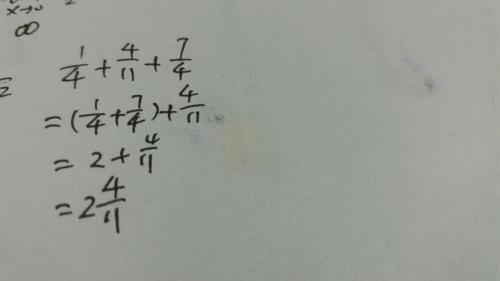 x→0 2
∞
1/4 + 4/11 + 7/4
= (1/4 + 7/4) + 4/11
= 2 + 4/11
= 2 4/11